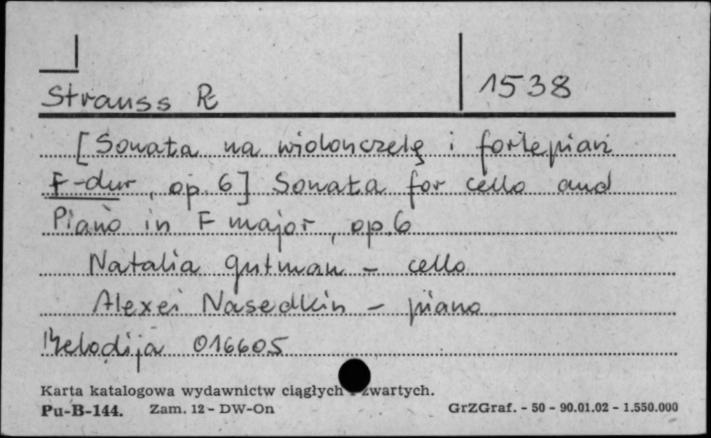 Strauss R
1538
[Sonata na wiolonczelę i fortepian
F-dur, op. 6] Sonata for cello and
Piano in F major, op. 6
Natalia Gutman - cello
Alexei Nasedkin - piano
Melodija 016605
Karta katalogowa wydawnictw ciągłych i zwartych.
Pu-B-144. Zam. 12 - DW-On GrZGraf. - 50 - 90.01.02 - 1.550.000